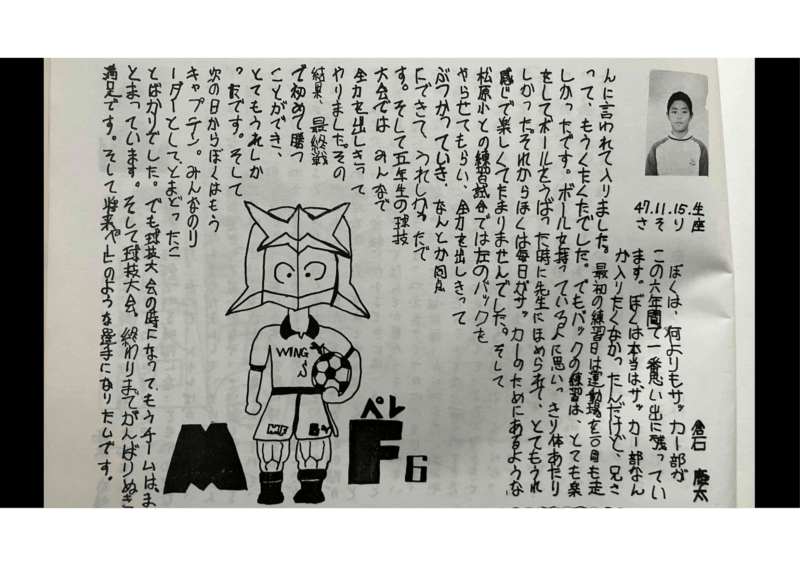 倉石 慶太
47.11.15.生
さそり座
ぼくは、何よりもサッカー部が
この六年間で一番思い出に残ってい
ます。ぼくは本当はサッカー部なん
か入りたくなかったんだけど、兄さ
んに言われて入りました。最初の練習日は運動場を回も走
って、もうくたくたでした。でもバックの練習は、とても楽
しかったです。ボールを持っている人に思いっきり体あたり
をしてボールをうばった時に先生にほめられて、とてもうれ
しかったそれからぼくは毎日がサッカーのためにあるような
感じで楽しくてたまりませんでした。そして
松原小との練習試合では左のバックを
やらせてもらい、全力を出しきって
ぶつかっていき、なんとか同点
にできて、うれしかったで
す。そして五年生の球技
大会では みんなで
全力を出しきって
やりました。その
結果、最終戦
で初めて勝つ
ことができ、
とてもうれしか
ったです。そして
次の日からぼくはもう
キャプテン。みんなのリ
ーダーとして、とまどったこ
とばかりでした。でも球技大会の時になって、もうチームは、ま
とまっています。そして球技大会、終わりまでがんばりぬき
満足です。そして将来ペレのような選手になりたいです。
WING
S
MF
6
ペレ
MF 6